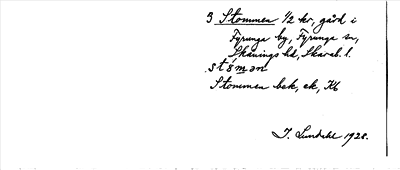 3 Stommen 1/2 kr, gård i
Fyrunga by, Fyrunga sn,
Skånings hd, Skarab. l.
stómən
Stommen bek, ek, Kb
I. Lundahl 1928.